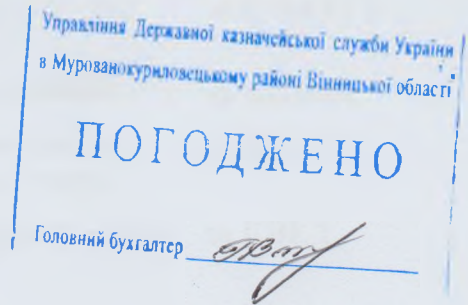 Управління Державної казначейської служби України
в Мурованокуриловецькому районі Вінницької області
ПОГОДЖЕНО
Головний бухгалтер